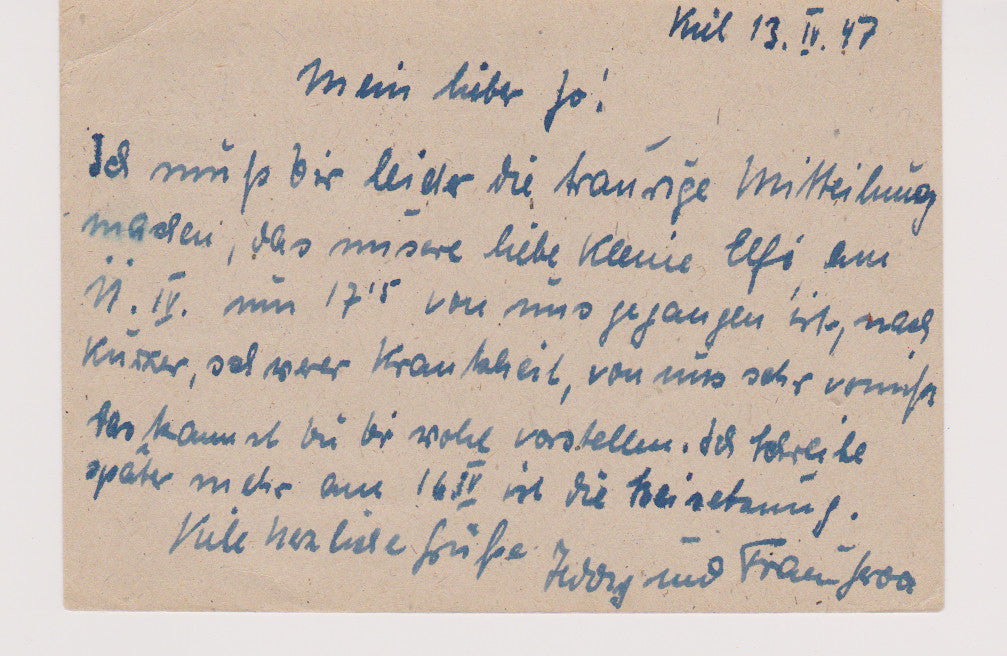 Kiel 13. IV. 47
Mein lieber Jo!
Ich muß dir leider die traurige Mitteilung
machen, das unsere liebe kleine Elfi am
11. IV. um 17¹⁵ von uns gegangen ist, nach
kurzer, schwerer Krankheit, von uns sehr vermißt
das kannst du dir wohl vorstellen. Ich schreibe
später mehr am 16 IV ist die Beisetzung.
Viele herzliche Grüße
und Frau